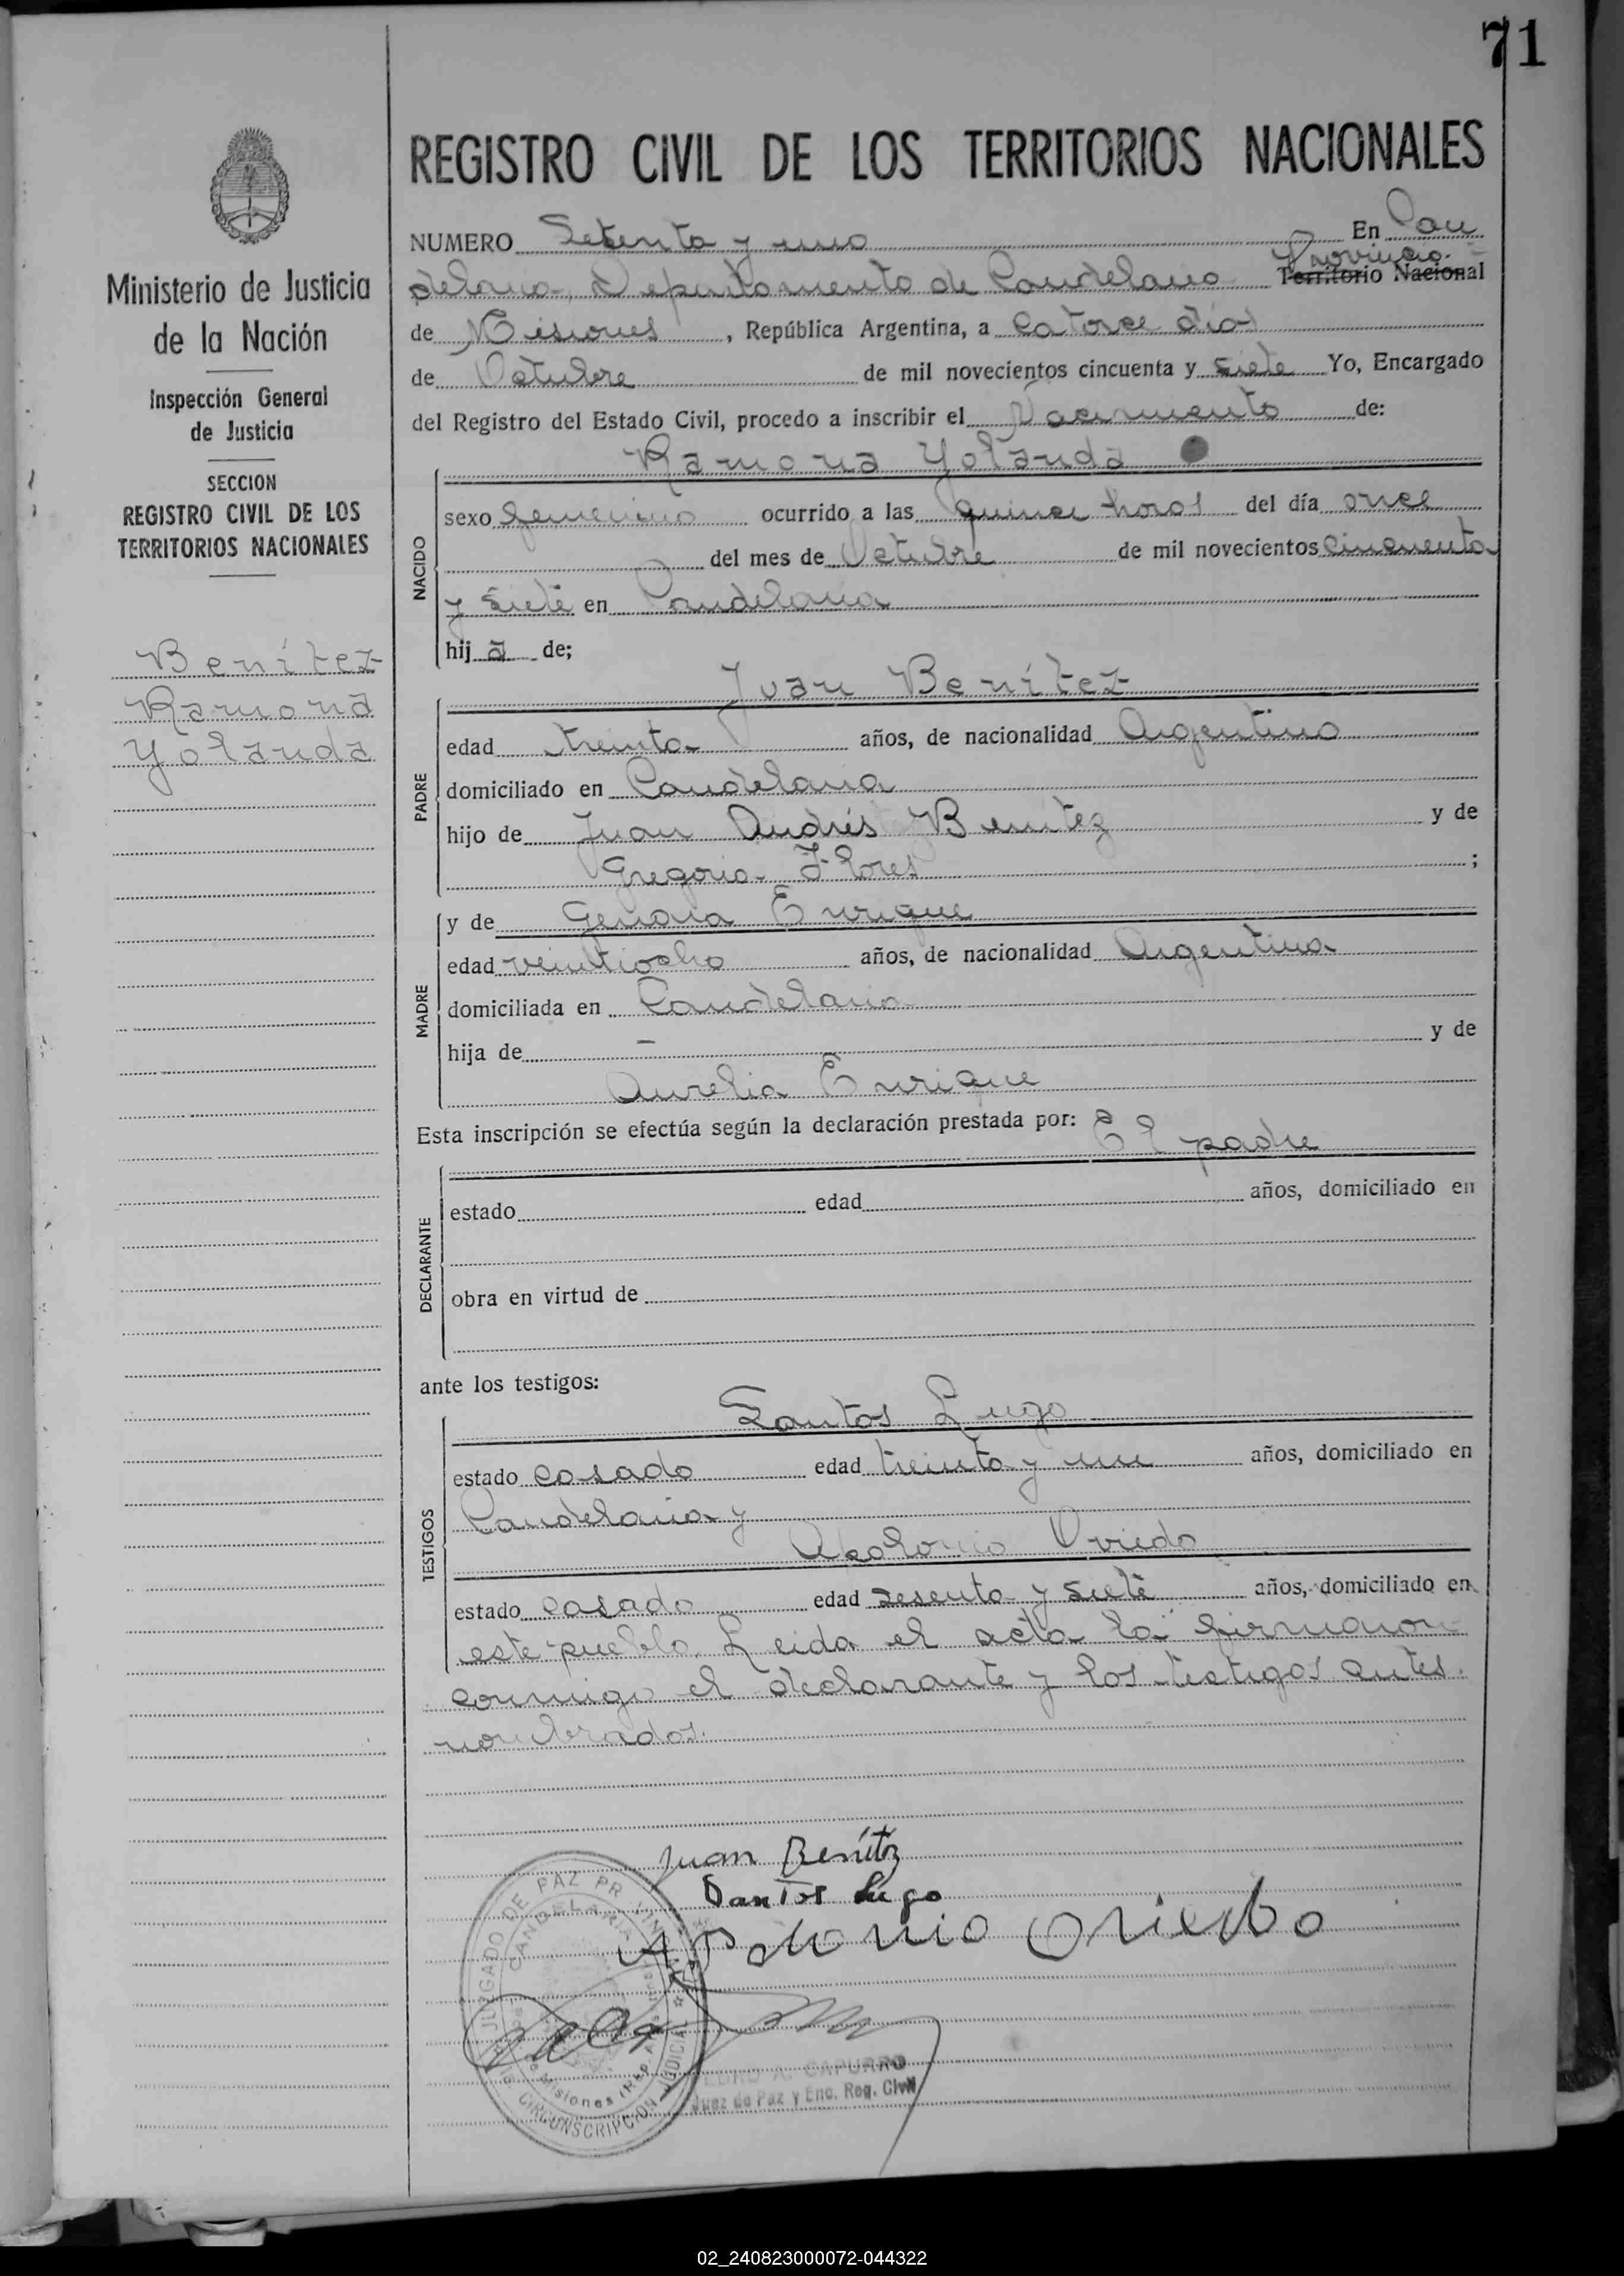 71
REGISTRO CIVIL DE LOS TERRITORIOS NACIONALES
Ministerio de Justicia
de la Nación
Inspección General
de Justicia
SECCION
REGISTRO CIVIL DE LOS
TERRITORIOS NACIONALES
Benítez
Ramona
Yolanda
NUMERO Setenta y uno En Can
delaria, Departamento de Candelaria Provincia Territorio Nacional
de Misiones, República Argentina, a catorce dias
de Octubre de mil novecientos cincuenta y siete Yo, Encargado
del Registro del Estado Civil, procedo a inscribir el Nacimiento de:
Ramona Yolanda
NACIDO
sexo femenino ocurrido a las quince horas del día once
del mes de Octubre de mil novecientos cincuenta
y siete en Candelaria
hij a de;
Juan Benítez
PADRE
edad treinta años, de nacionalidad Argentino
domiciliado en Candelaria
hijo de Juan Andrés Benítez y de
Gregoria Flores ;
MADRE
y de Genara Enrique
edad veintiocho años, de nacionalidad Argentina
domiciliada en Candelaria
hija de — y de
Aurelia Enrique
Esta inscripción se efectúa según la declaración prestada por: El padre
DECLARANTE
estado edad años, domiciliado en
obra en virtud de
ante los testigos:
Santos Lugo
TESTIGOS
estado casado edad treinta y un años, domiciliado en
Candelaria y
Apolonio Oviedo
estado casado edad sesenta y siete años, domiciliado en
este pueblo. Leida el acta la firmaron
conmigo el declarante y los testigos antes
nombrados.
Juan Benítez
Santos Lugo
Apolonio Oviedo
JUZGADO DE PAZ
CANDELARIA
Misiones
CIRCUNSCRIPCION JUDICIAL
A. CAPURRO
Juez de Paz y Enc. Reg. Civil
02_240823000072-044322